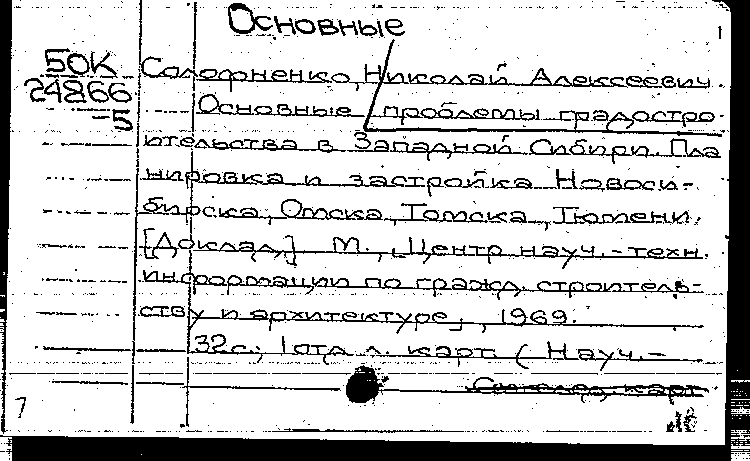 Основные
1
50К
24866
-5
Солофненко, Николай Алексеевич.
Основные проблемы градостро-
ительства в Западной Сибири. Пла
нировка и застройка Новоси-
бирска, Омска, Томска, Тюмени.
[Доклад.] М., „Центр науч.-техн.
информации по гражд. строитель-
ству и архитектуре„, 1969.
32с.; 1 отд. л. карт. (Науч.-
7